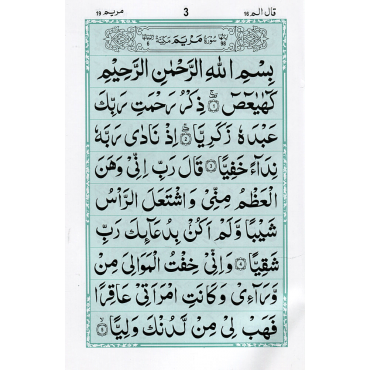 قال الم ١٦ 3 مريم ١٩
سُوْرَةُ مَرْيَمَ مَكِّيَّةٌ
بِسْمِ اللهِ الرَّحْمٰنِ الرَّحِيْمِ
كٓهٰيٰعٓصٓ ۝١ ذِكْرُ رَحْمَتِ رَبِّكَ
عَبْدَهٗ زَكَرِيَّا ۝٢ اِذْ نَادٰى رَبَّهٗ
نِدَآءً خَفِيًّا ۝٣ قَالَ رَبِّ اِنِّىْ وَهَنَ
الْعَظْمُ مِنِّىْ وَ اشْتَعَلَ الرَّاْسُ
شَيْبًا وَّلَمْ اَكُنْۢ بِدُعَآئِكَ رَبِّ
شَقِيًّا ۝٤ وَاِنِّىْ خِفْتُ الْمَوَالِىَ مِنْ
وَّرَآءِىْ وَكَانَتِ امْرَاَتِىْ عَاقِرًا
فَهَبْ لِىْ مِنْ لَّدُنْكَ وَلِيًّا ۝٥